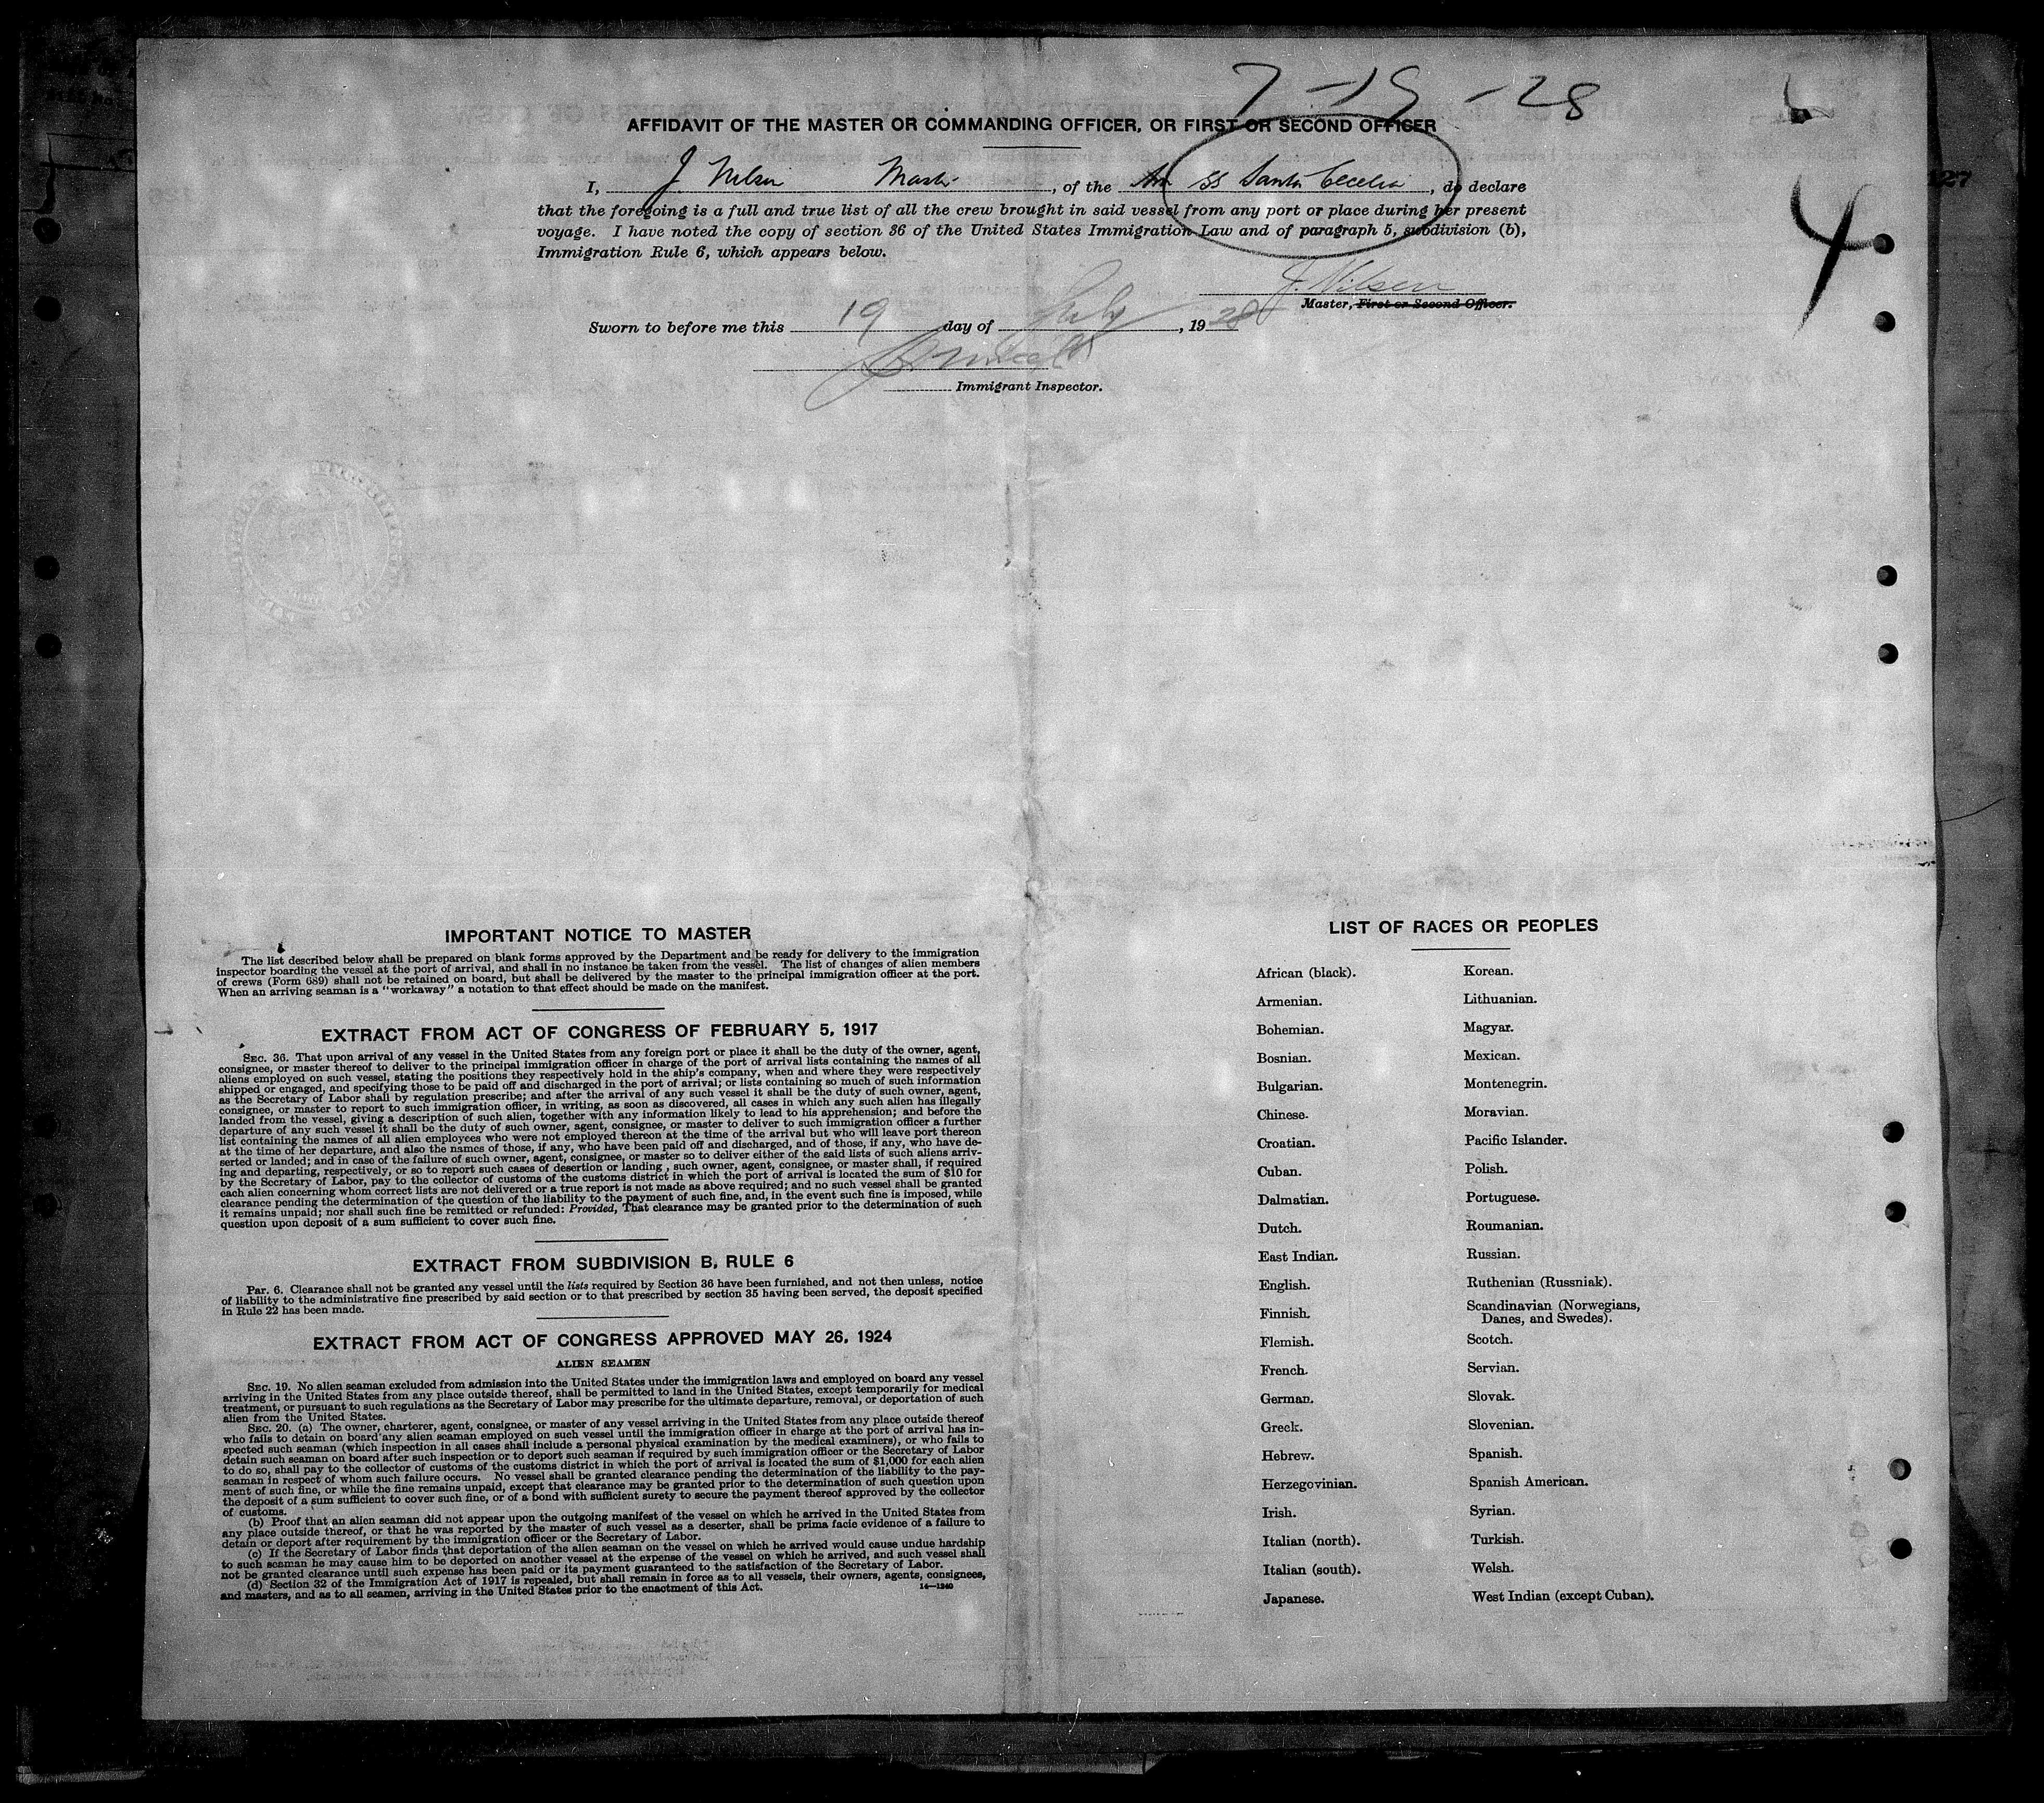 7-19-28
AFFIDAVIT OF THE MASTER OR COMMANDING OFFICER, OR FIRST OR SECOND OFFICER
I, J Nelsen Master, of the Am SS Santa Cecelia, do declare
that the foregoing is a full and true list of all the crew brought in said vessel from any port or place during her present
voyage. I have noted the copy of section 36 of the United States Immigration Law and of paragraph 5, subdivision (b),
Immigration Rule 6, which appears below.
4
127
J. Nilsen
Master, First or Second Officer.
Sworn to before me this 19 day of July, 1928
Immigrant Inspector.
IMPORTANT NOTICE TO MASTER
The list described below shall be prepared on blank forms approved by the Department and be ready for delivery to the immigration
inspector boarding the vessel at the port of arrival, and shall in no instance be taken from the vessel. The list of changes of alien members
of crews (Form 689) shall not be retained on board, but shall be delivered by the master to the principal immigration officer at the port.
When an arriving seaman is a "workaway" a notation to that effect should be made on the manifest.
EXTRACT FROM ACT OF CONGRESS OF FEBRUARY 5, 1917
SEC. 36. That upon arrival of any vessel in the United States from any foreign port or place it shall be the duty of the owner, agent,
consignee, or master thereof to deliver to the principal immigration officer in charge of the port of arrival lists containing the names of all
aliens employed on such vessel, stating the positions they respectively hold in the ship's company, when and where they were respectively
shipped or engaged, and specifying those to be paid off and discharged in the port of arrival; or lists containing so much of such information
as the Secretary of Labor shall by regulation prescribe; and after the arrival of any such vessel it shall be the duty of such owner, agent,
consignee, or master to report to such immigration officer, in writing, as soon as discovered, all cases in which any such alien has illegally
landed from the vessel, giving a description of such alien, together with any information likely to lead to his apprehension; and before the
departure of any such vessel it shall be the duty of such owner, agent, consignee, or master to deliver to such immigration officer a further
list containing the names of all alien employees who were not employed thereon at the time of the arrival but who will leave port thereon
at the time of her departure, and also the names of those, if any, who have been paid off and discharged, and of those, if any, who have de-
serted or landed; and in case of the failure of such owner, agent, consignee, or master so to deliver either of the said lists of such aliens arriv-
ing and departing, respectively, or so to report such cases of desertion or landing, such owner, agent, consignee, or master shall, if required
by the Secretary of Labor, pay to the collector of customs of the customs district in which the port of arrival is located the sum of $10 for
each alien concerning whom correct lists are not delivered or a true report is not made as above required; and no such vessel shall be granted
clearance pending the determination of the question of the liability to the payment of such fine, and, in the event such fine is imposed, while
it remains unpaid; nor shall such fine be remitted or refunded: Provided, That clearance may be granted prior to the determination of such
question upon deposit of a sum sufficient to cover such fine.
EXTRACT FROM SUBDIVISION B, RULE 6
Par. 6. Clearance shall not be granted any vessel until the lists required by Section 36 have been furnished, and not then unless, notice
of liability to the administrative fine prescribed by said section or to that prescribed by section 35 having been served, the deposit specified
in Rule 22 has been made.
EXTRACT FROM ACT OF CONGRESS APPROVED MAY 26, 1924
ALIEN SEAMEN
SEC. 19. No alien seaman excluded from admission into the United States under the immigration laws and employed on board any vessel
arriving in the United States from any place outside thereof, shall be permitted to land in the United States, except temporarily for medical
treatment, or pursuant to such regulations as the Secretary of Labor may prescribe for the ultimate departure, removal, or deportation of such
alien from the United States.
SEC. 20. (a) The owner, charterer, agent, consignee, or master of any vessel arriving in the United States from any place outside thereof
who fails to detain on board any alien seaman employed on such vessel until the immigration officer in charge at the port of arrival has in-
spected such seaman (which inspection in all cases shall include a personal physical examination by the medical examiners), or who fails to
detain such seaman on board after such inspection or to deport such seaman if required by such immigration officer or the Secretary of Labor
to do so, shall pay to the collector of customs of the customs district in which the port of arrival is located the sum of $1,000 for each alien
seaman in respect of whom such failure occurs. No vessel shall be granted clearance pending the determination of the liability to the pay-
ment of such fine, or while the fine remains unpaid, except that clearance may be granted prior to the determination of such question upon
the deposit of a sum sufficient to cover such fine, or of a bond with sufficient surety to secure the payment thereof approved by the collector
of customs.
(b) Proof that an alien seaman did not appear upon the outgoing manifest of the vessel on which he arrived in the United States from
any place outside thereof, or that he was reported by the master of such vessel as a deserter, shall be prima facie evidence of a failure to
detain or deport after requirement by the immigration officer or the Secretary of Labor.
(c) If the Secretary of Labor finds that deportation of the alien seaman on the vessel on which he arrived would cause undue hardship
to such seaman he may cause him to be deported on another vessel at the expense of the vessel on which he arrived, and such vessel shall
not be granted clearance until such expense has been paid or its payment guaranteed to the satisfaction of the Secretary of Labor.
(d) Section 32 of the Immigration Act of 1917 is repealed, but shall remain in force as to all vessels, their owners, agents, consignees,
and masters, and as to all seamen, arriving in the United States prior to the enactment of this Act.
14—1240
LIST OF RACES OR PEOPLES
African (black).
Armenian.
Bohemian.
Bosnian.
Bulgarian.
Chinese.
Croatian.
Cuban.
Dalmatian.
Dutch.
East Indian.
English.
Finnish.
Flemish.
French.
German.
Greek.
Hebrew.
Herzegovinian.
Irish.
Italian (north).
Italian (south).
Japanese.
Korean.
Lithuanian.
Magyar.
Mexican.
Montenegrin.
Moravian.
Pacific Islander.
Polish.
Portuguese.
Roumanian.
Russian.
Ruthenian (Russniak).
Scandinavian (Norwegians,
Danes, and Swedes).
Scotch.
Servian.
Slovak.
Slovenian.
Spanish.
Spanish American.
Syrian.
Turkish.
Welsh.
West Indian (except Cuban).